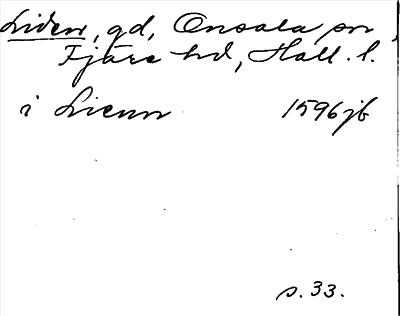 Liden, gd, Onsala sn,
Fjäre hd, Hall. l.
i Lienn 1596 jb
s. 33.